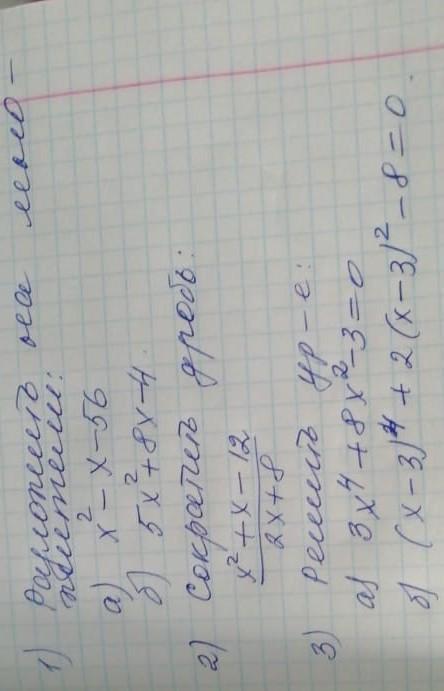 1) Разложить на множ-
жители:
а) x² - x - 56
б) 5x² + 8x - 4.
2) Сократить дробь:
x² + x - 12
2x + 8
3) Решить ур-е:
а) 3x⁴ + 8x² - 3 = 0
б) (x - 3)⁴ + 2(x - 3)² - 8 = 0.